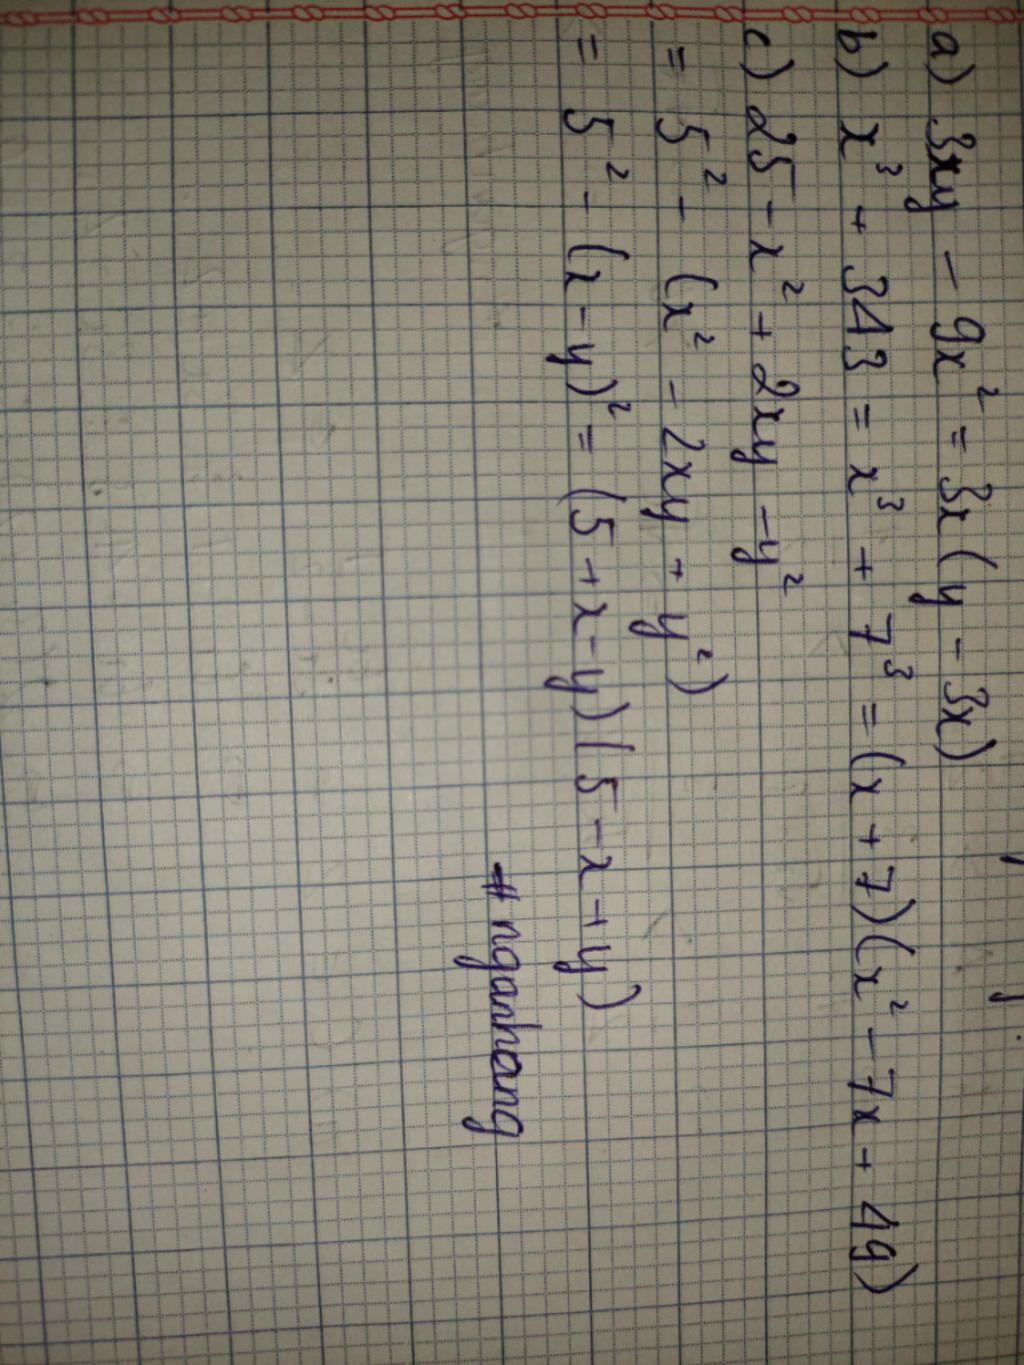 a) 3xy - 9x² = 3x(y - 3x)
b) x³ + 343 = x³ + 7³ = (x + 7)(x² - 7x + 49)
c) 25 - x² + 2xy - y²
= 5² - (x² - 2xy + y²)
= 5² - (x - y)² = (5 + x - y)(5 - x + y)
# nganhang